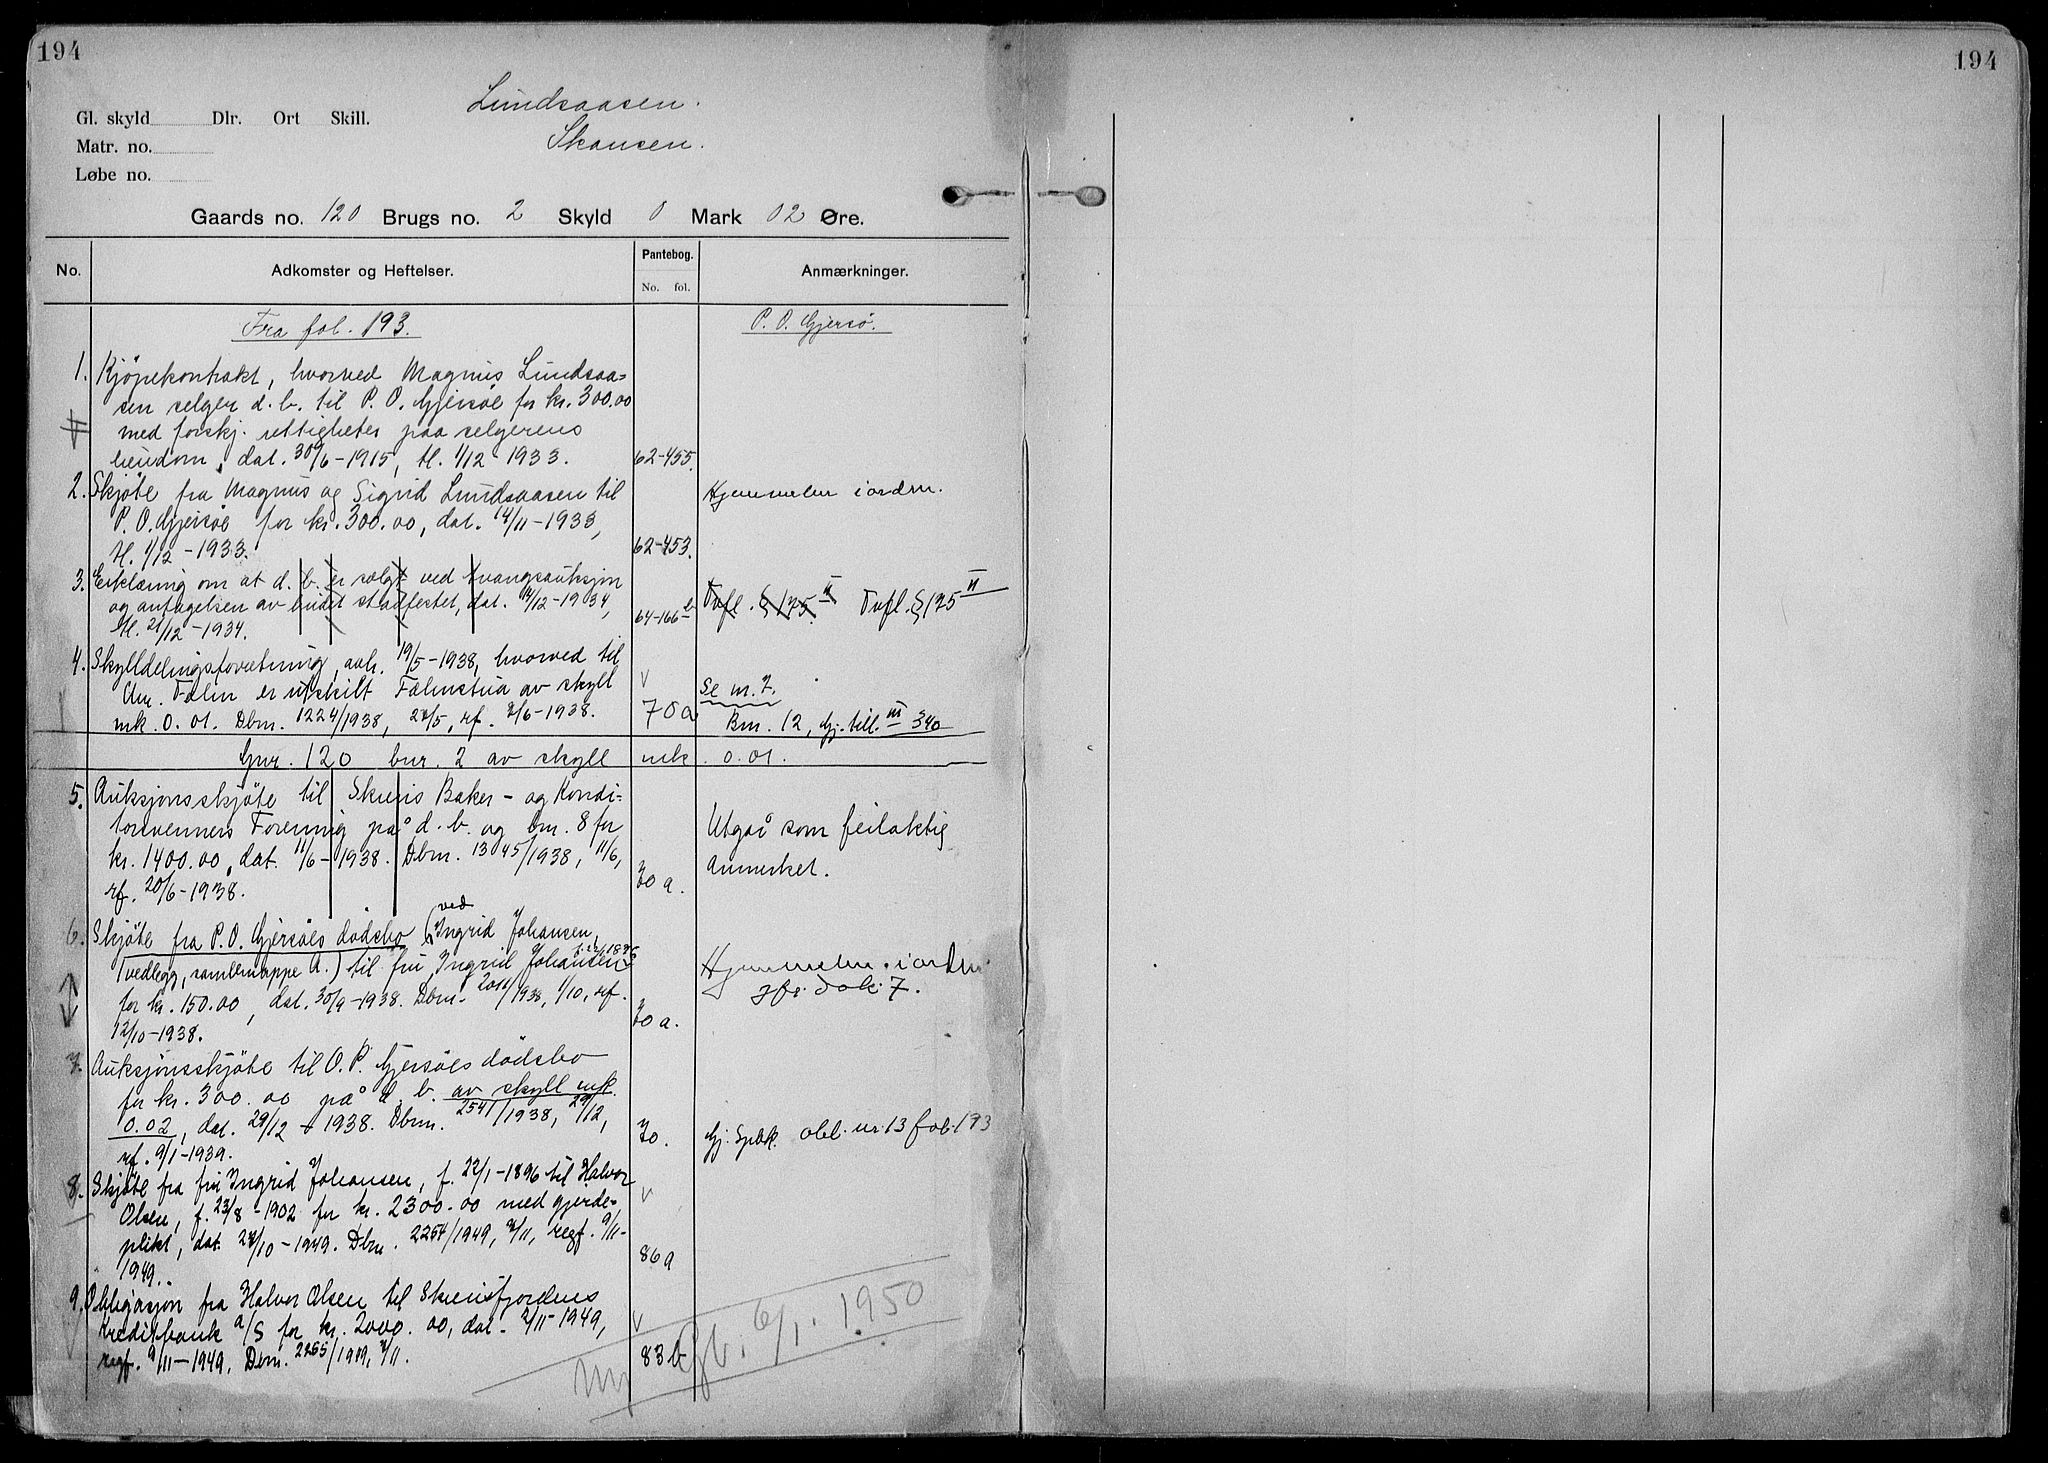 194
194
Lundsaasen.
Gl. skyld Dlr. Ort Skill.
Skansen.
Matr. no.
Løbe no.
Gaards no. 120 Brugs no. 2 Skyld 0 Mark 02 Øre.
No. Adkomster og Heftelser. Pantebog. Anmærkninger.
No. fol.
Fra fol. 193. P. O. Gjersø.
1. Kjøpekontrakt, hvorved Magnus Lundsaa=
sen selger d. b. til P. O. Gjersøe for kr. 300.00
med forskj. rettigheter paa selgerens
eiendom, dat. 30/6-1915, tl. 1/12-1933. 62-455.
2. Skjøte fra Magnus og Sigrid Lundsaasen til Hjemmelen iorden.
P. O. Gjersøe for kr. 300.00, dat. 14/11-1933,
tl. 1/12-1933. 62-453.
3. Erklæring om at d. b. er solgt ved tvangsauksjon
og antagelsen av budet stadfestet, dat. 14/12-1934, 64-166b Tvfl. § 175 II Tvfl. § 175 II
tl. 21/12-1934.
4. Skylldelingsforretning, avh. 19/5-1938, hvorved til v
Chr. Falin er utskilt Falinstua av skyll Se nr. 7.
mk. 0.01. Dbnr. 1224/1938, 27/5, rf. 2/6-1938. 70a Bnr. 12, Gj. till. III 340
Gnr. 120 bnr. 2 av skyll mk. 0.01.
5. Auksjonsskjøte til Skiens Baker- og Kondi=
torsvenners Forening på d. b. og bnr. 8 for Utgår som feilaktig
kr. 1400.00, dat. 11/6-1938. Dbnr. 1345/1938, 11/6, anmerket.
rf. 20/6-1938. 70a.
6. Skjøte fra P. O. Gjersøes dødsbo (ved Ingrid Johansen,
f. 22/1 1896
(vedlegg, samlemappe A.) til fru Ingrid Johansen Hjemmelen iorden
for kr. 150.00, dat. 30/9-1938. Dbnr. 2011/1938, 1/10, rf. jfr. dok. 7.
12/10-1938. 70a.
7. Auksjonsskjøte til O. P. Gjersøes dødsbo
for kr. 300.00 på d. b. av skyll mk.
0.02, dat. 29/12-1938. Dbnr. 2541/1938, 29/12, 70. Gj. Spbk. obl. nr 13 fol. 193
rf. 9/1-1939.
8. Skjøte fra fru Ingrid Johansen, f. 22/1-1896 til Halvor v
Olsen, f. 23/8-1902 for kr. 2300.00 med gjerde-
plikt, dat. 27/10-1949. Dbnr. 2254/1949, 2/11, regf. 9/11-
1949. 86a
9. Obligasjon fra Halvor Olsen til Skiensfjordens
Kreditbank a/S for kr. 2000.00, dat. 2/11-1949, v
regf. 9/11-1949. Dbnr. 2255/1949, 2/11. 83b
Gb. 6/1. 1950